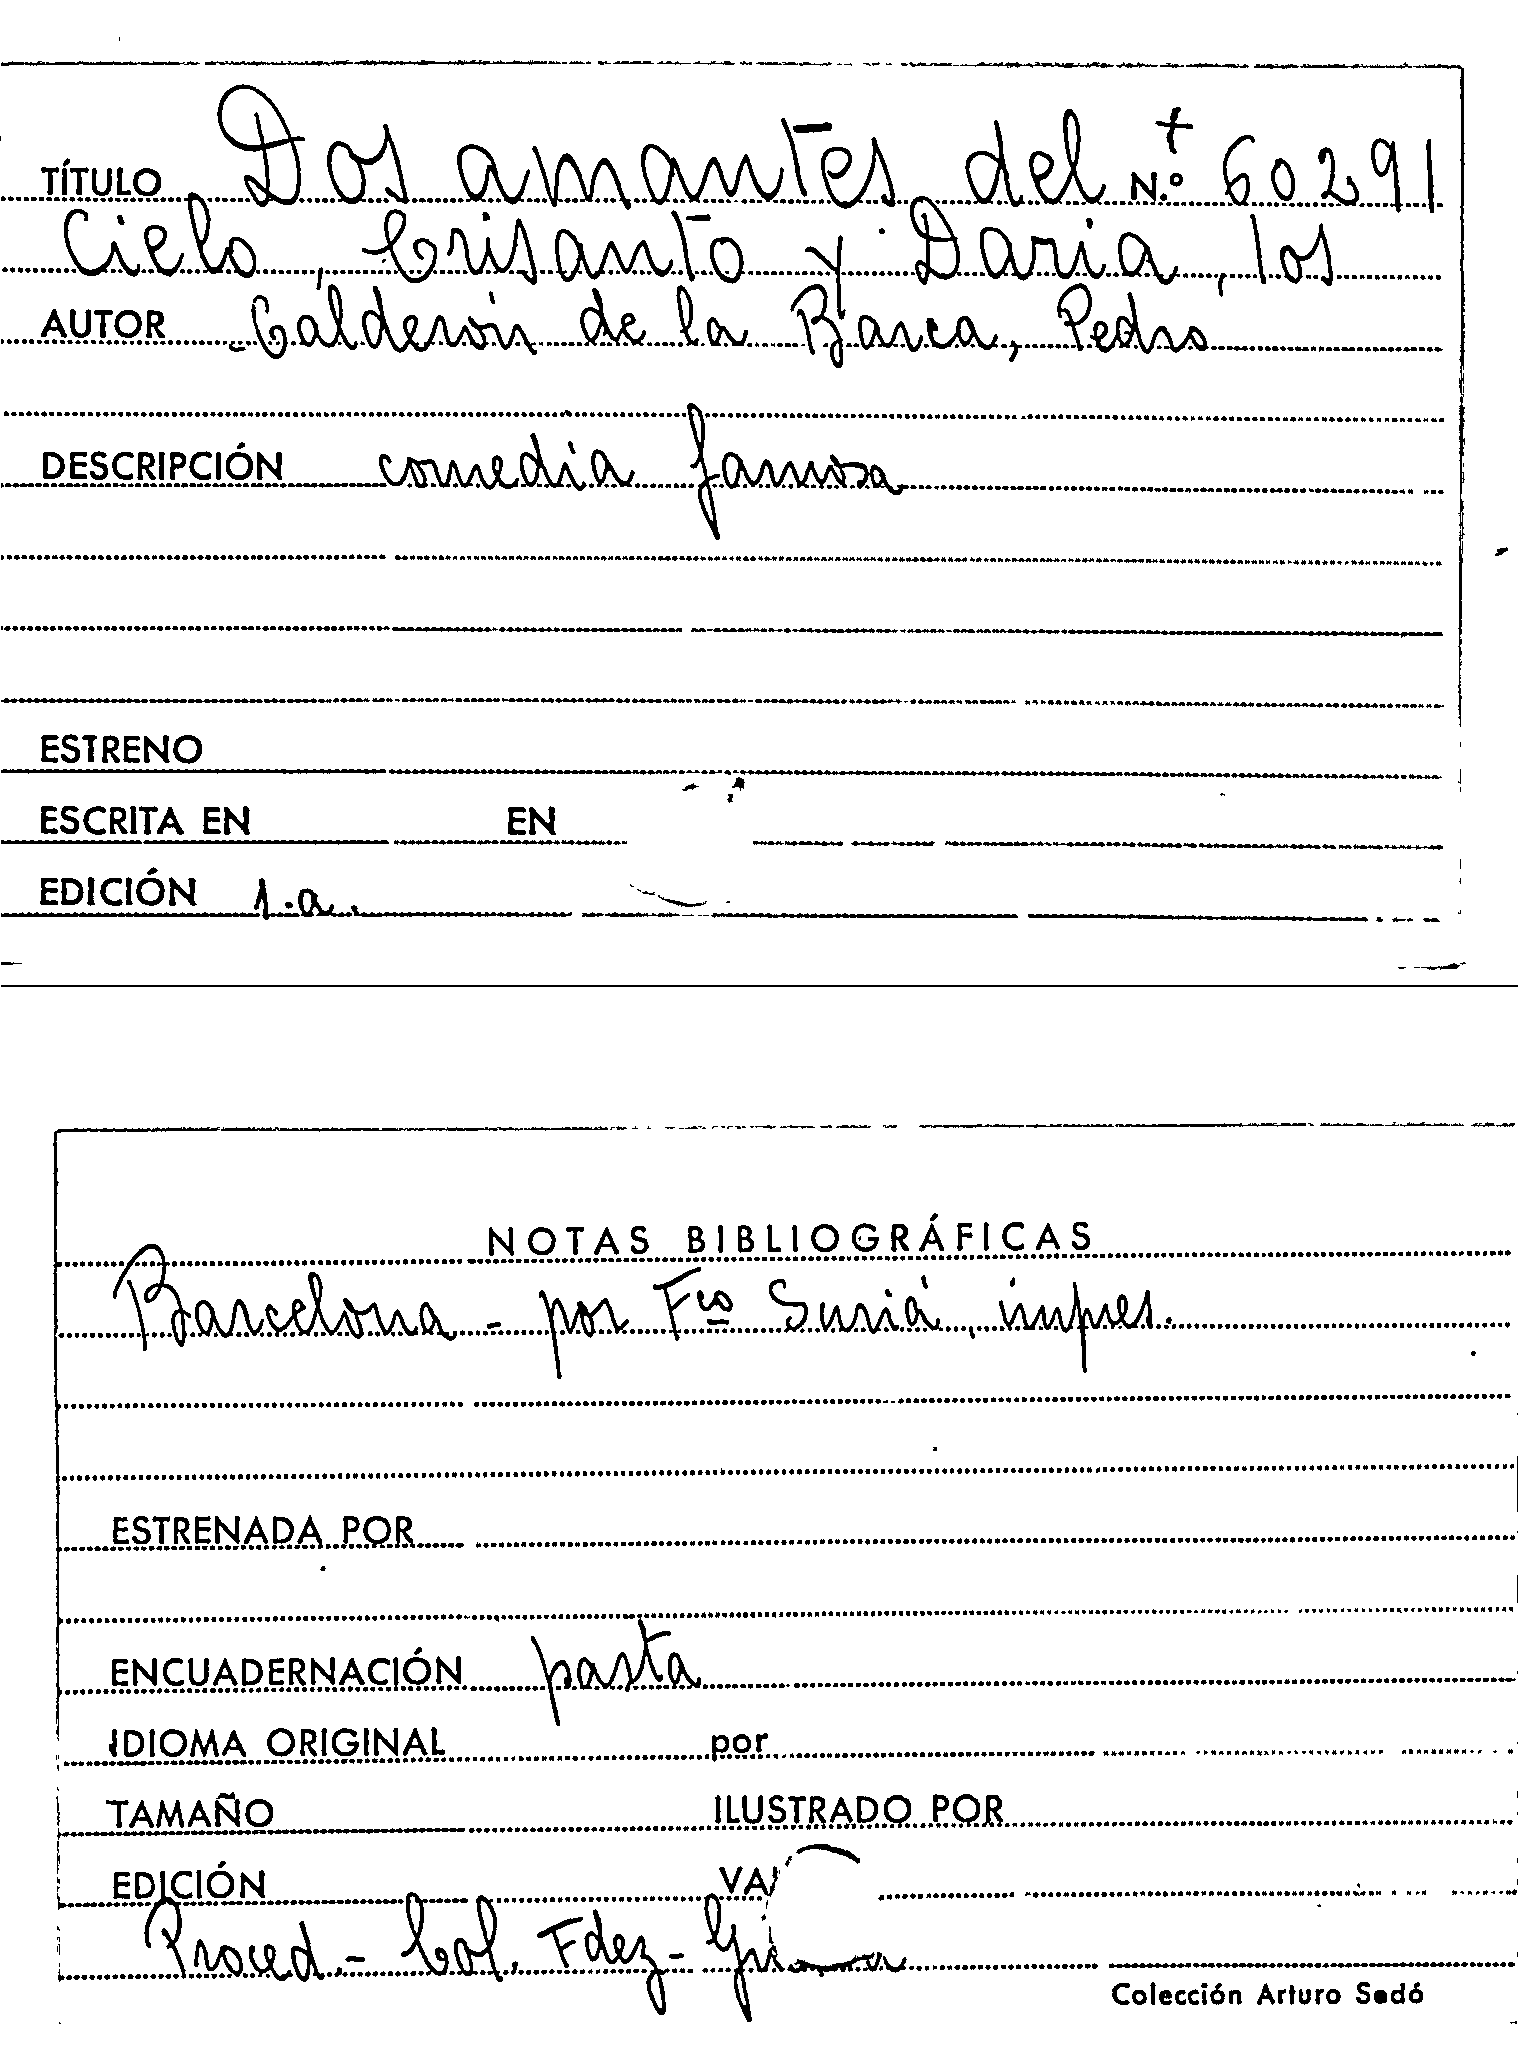 TÍTULO Dos amantes del N.º 60291
Cielo, Crisanto y Daria, los
AUTOR Calderón de la Barca, Pedro
DESCRIPCIÓN comedia famosa
ESTRENO
ESCRITA EN EN
EDICIÓN 1.a.
NOTAS BIBLIOGRÁFICAS
Barcelona - por Fco Suriá, impres.
ESTRENADA POR
ENCUADERNACIÓN pasta
IDIOMA ORIGINAL por
TAMAÑO ILUSTRADO POR
EDICIÓN VA
Proced.- Col. Fdez-
Colección Arturo Sedó